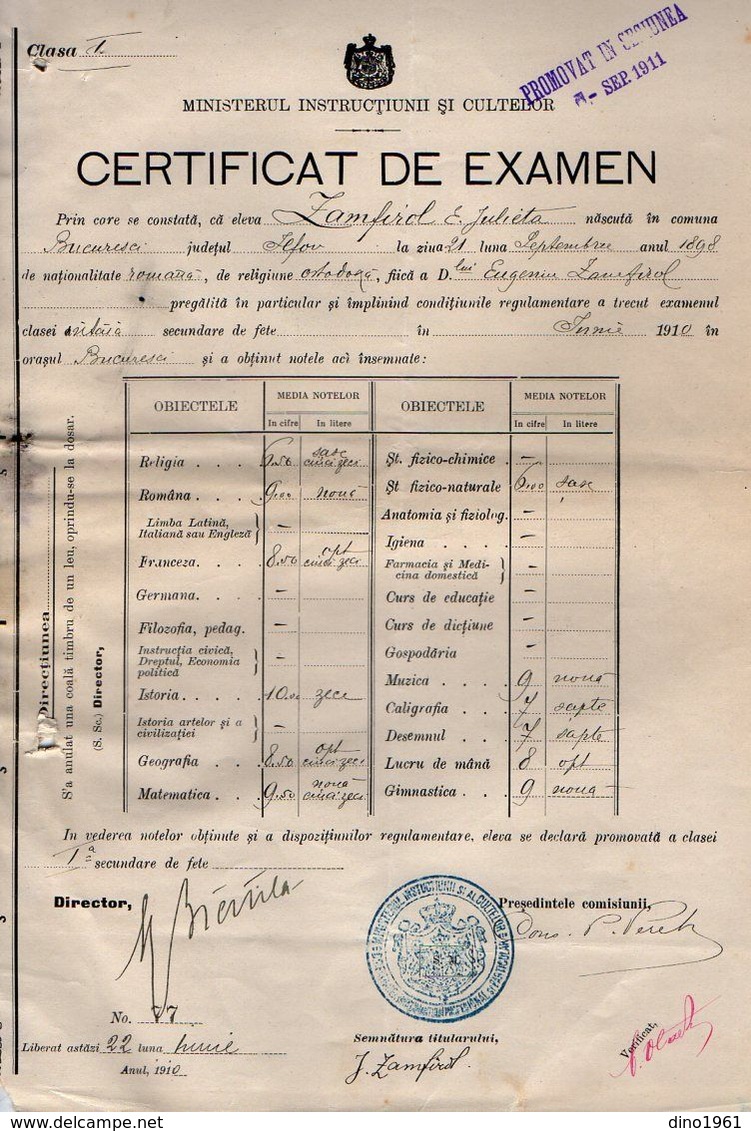 Clasa I.
PROMOVAT IN SESIUNEA
SEP. 1911
MINISTERUL INSTRUCȚIUNII ȘI CULTELOR
CERTIFICAT DE EXAMEN
Prin care se constată, că eleva Zamfirol E. Julieta născută în comuna
Bucuresci județul Ilfov la ziua 21 luna Septembrie anul 1898
de naționalitate română, de religiune ortodoxă, fiică a D.lui Eugeniu Zamfirol
pregălită în particular și împlinind condițiunile regulamentare a trecut examenul
clasei întâia secundare de fete în Iunie 1910 în
orașul Bucuresci și a obținut notele aci însemnate:
OBIECTELE MEDIA NOTELOR OBIECTELE MEDIA NOTELOR
In cifre In litere In cifre In litere
Religia . . . . 6.50 șase cincizeci
Româna . . . . 9.00 nouă
Limba Latină, Italiană sau Engleză —
Franceza. . . . 8.50 opt cincizeci
Germana. . . . —
Filozofia, pedag. —
Instrucția civică, Dreptul, Economia politică —
Istoria . . . . 10.00 zece
Istoria artelor și a civilizației —
Geografia . . . 8.50 opt cincizeci
Matematica . . . 9.50 nouă cincizeci
Șt. fizico-chimice . —
Șt fizico-naturale 6.00 șase
Anatomia și fiziolog. —
Igiena . . . . —
Farmacia și Medicina domestică —
Curs de educație —
Curs de dicțiune —
Gospodăria —
Muzica . . . . 9 nouă
Caligrafia . . . 7 șapte
Desemnul . . . 7 șapte
Lucru de mână 8 opt
Gimnastica . . . 9 nouă
Direcțiunea
S'a anulat una coală timbru de un leu, oprindu-se la dosar.
(S. Sc.) Director,
In vederea notelor obținute și a dispozițiunilor regulamentare, eleva se declară promovată a clasei
I a secundare de fete
Director, Președintele comisiunii,
No. 77
Liberat astăzi 22 luna Iunie
Anul, 1910
Semnătura titularului,
J. Zamfirol.
Verificat,
dino1961